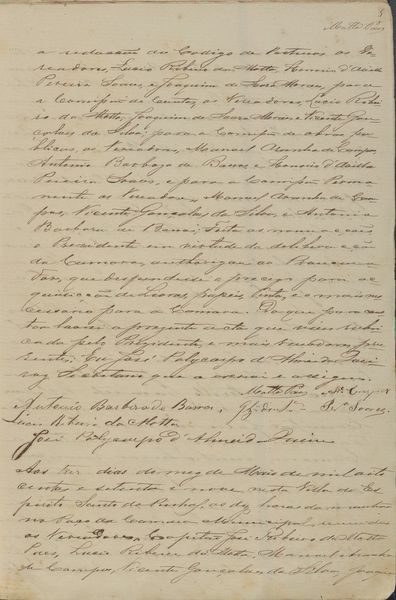 5
Matta Paes
a redacção do Codigo de Posturas os Ve-
readores, Lucio Ribeiro da Motta, Honorio d'Avila
Pereira Soares, e Joaquim de Moraes, para
a Comissão de Contas, os Vereadores Lucio Ribei
ro da Motta, Joaquim de Moraes e Vicente Gon-
çalves da Silva; para a Comissão de obras pu-
blicas, os Vereadores, Manoel Aranha de Campos,
Antonio Barboza de Barros e Honorio d'Avilla
Pereira Soares, e para a Comissão Perma
nente os Vereadores, Manoel Aranha de Cam
pos, Vicente Gonçalves da Silva, e Antonio
Barboza de Barros; feita as nomeações
o Presidente em virtude da deliberação
da Camara, authorizou ao Procura
dor, que despendesse o preciso para ac
quisição de Livros, papeis, tinta, e o mais ne
cessario para a Camara. Do que para cons
tar lavrei a prezente acta que vai rubri
cada pelo Presidente, e mais vereadores pre
zentes. Eu José Polycarpo d'Almeida Quei
roz Secretario que a escrevi e assigno.
Matta Paes
Antonio Barboza de Barros, Soares
Lucio Ribeiro da Motta
José Polycarpo d'Almeida
Aos trez dias do mez de Maio de mil oito
centos e setenta e nove, nesta Villa do Es
pirito Santo do Pinhal, as dez horas da manhã
no Paço da Camara Municipal, reunidos
os Vereadores, Capitão José Ribeiro da Motta
Paes, Lucio Ribeiro da Motta, Manoel Aranha
de Campos, Vicente Gonçalves da Silva, Joaquim